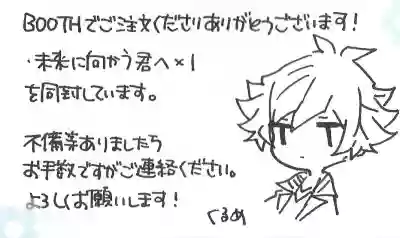 BOOTHでご注文くださりありがとうございます!
・未来に向かう君へ×1
を同封しています。
不備等ありましたら
お手数ですがご連絡ください。
よろしくお願いします!
くるめ